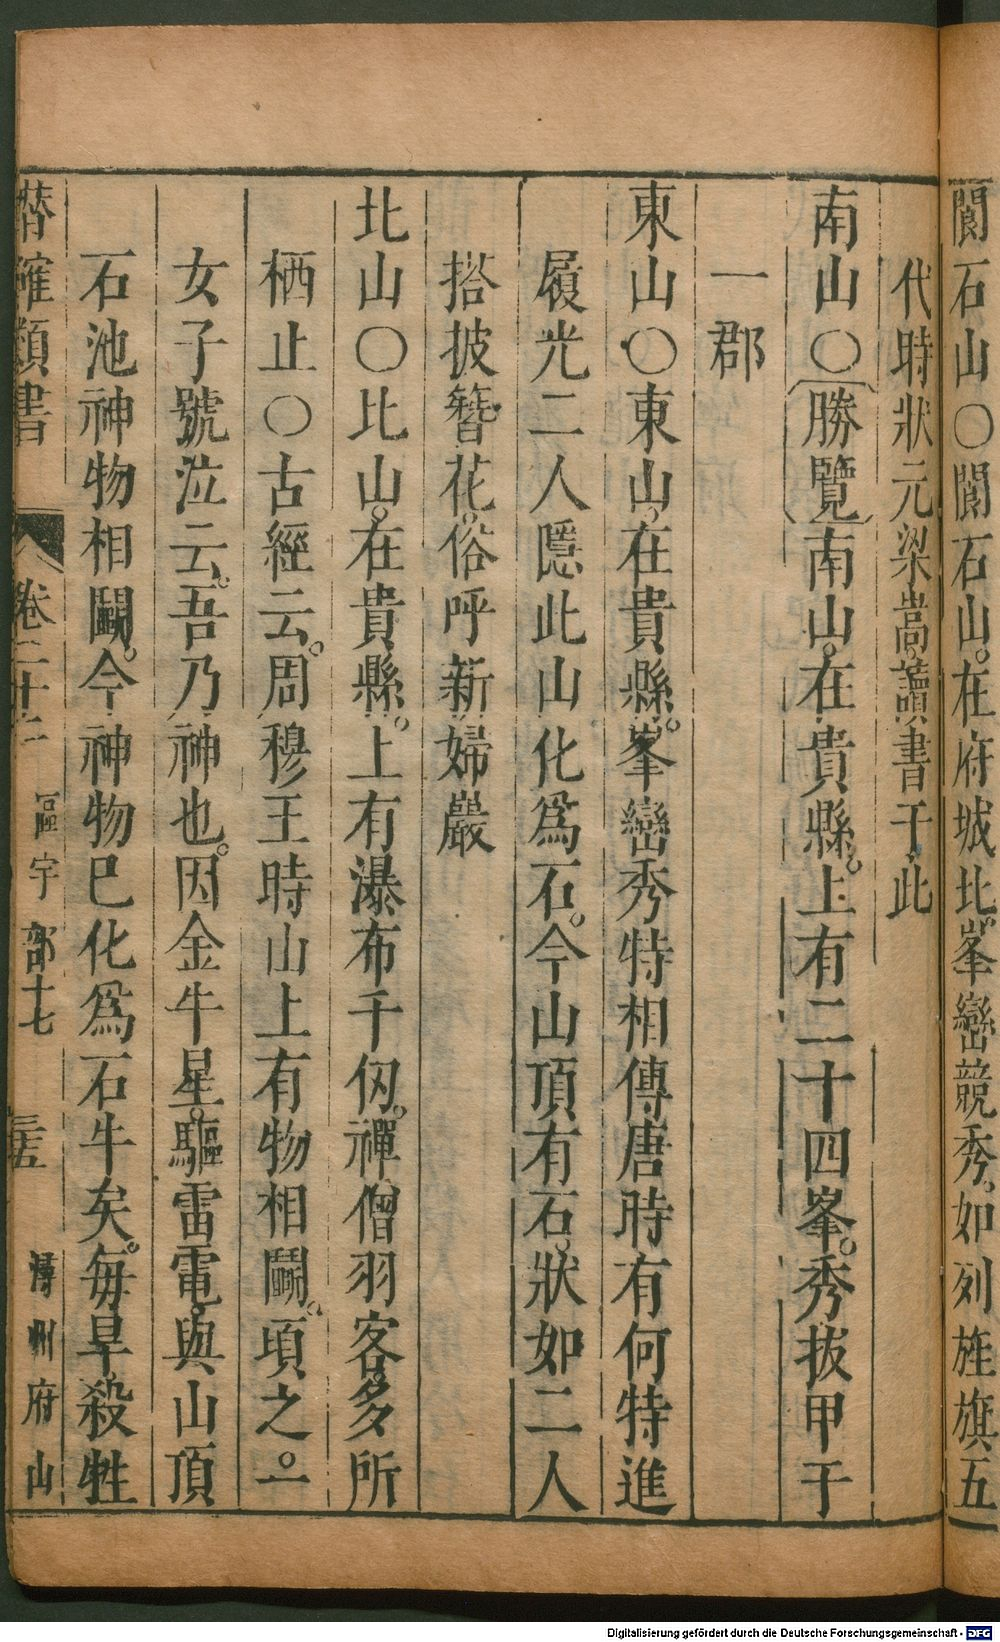 閬石山〇閬石山在府城北峯巒競秀如列旌旗五
代時狀元梁嵩讀書于此
南山〇勝覽南山在貴縣上有二十四峯秀拔甲于
一郡
東山〇東山在貴縣峯巒秀特相傳唐時有何特進
履光二人隱此山化爲石今山頂有石狀如二人
搭披簪花俗呼新婦巖
北山〇北山在貴縣上有瀑布千仞禪僧羽客多所
栖止〇古經云周穆王時山上有物相鬬頃之一
女子號泣云吾乃神也因金牛星驅雷電與山頂
石池神物相鬬今神物巳化爲石牛矣每旱殺牲
潛確類書 卷二十 區宇部十七 潯州府山
Digitalisierung gefördert durch die Deutsche Forschungsgemeinschaft - DFG